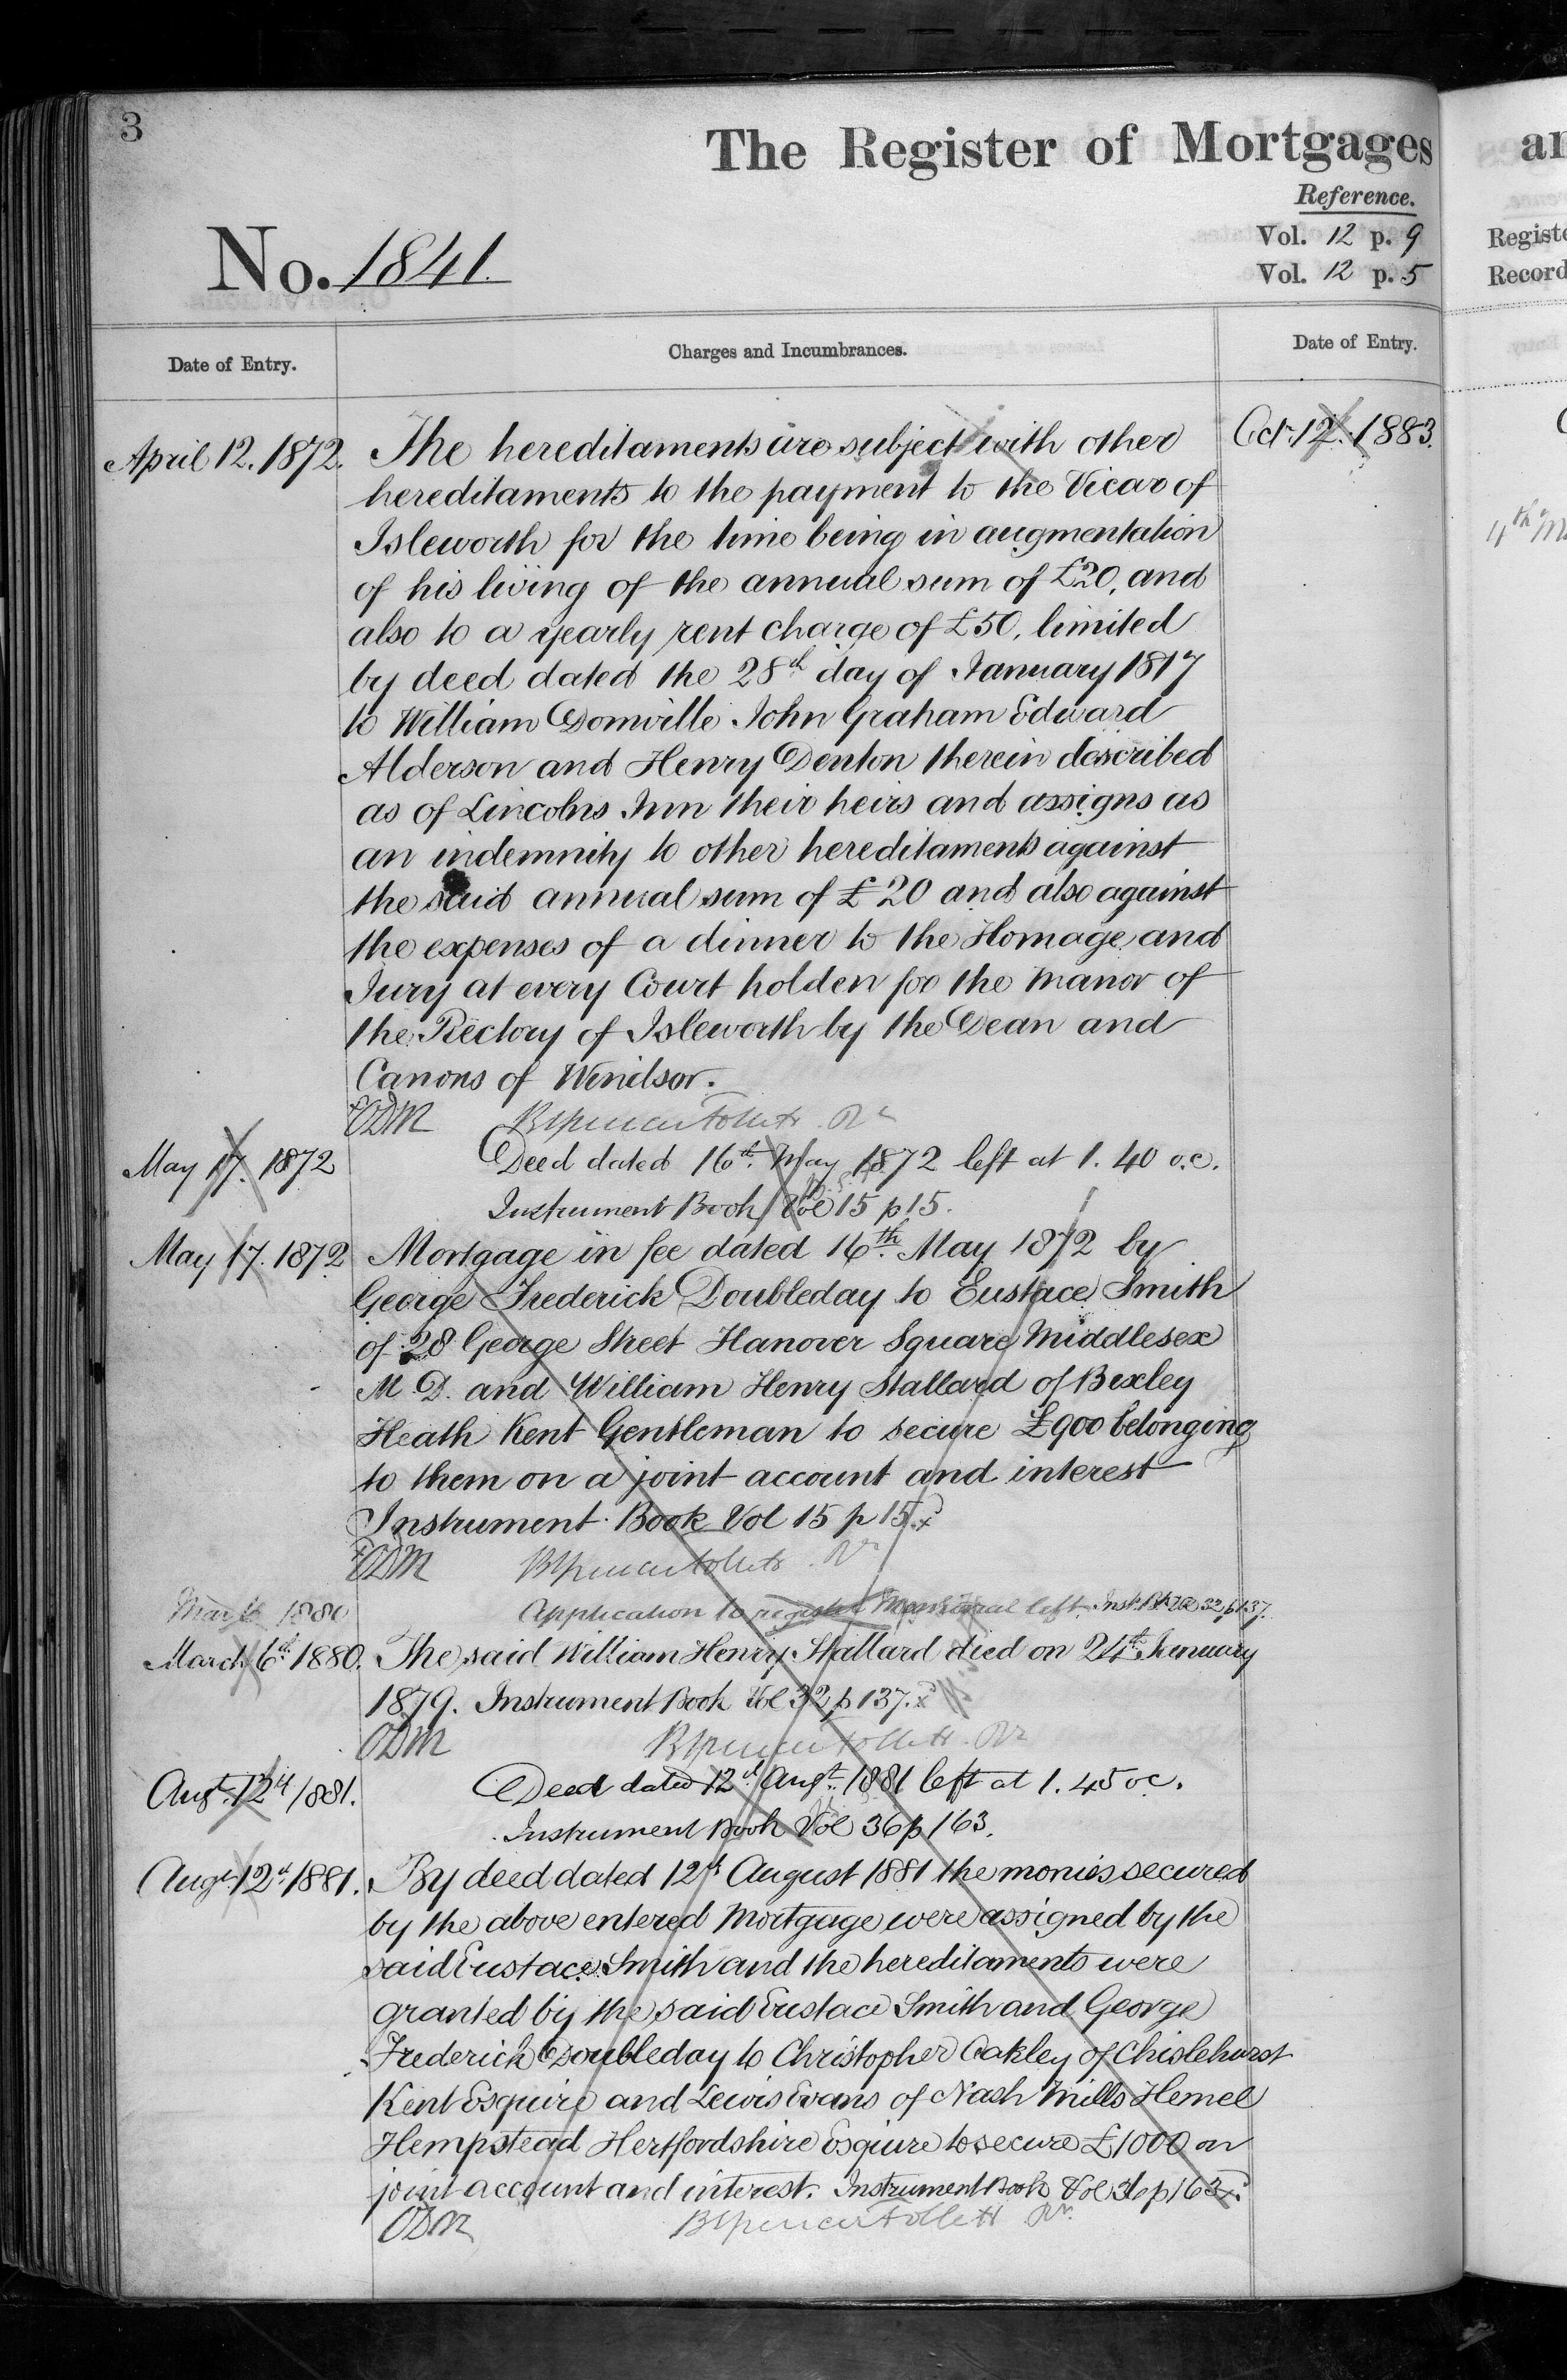 3
The Register of Mortgages
Reference.
Vol. 12 p. 9
Vol. 12 p. 5
No. 1841.
Date of Entry.
Charges and Incumbrances.
Date of Entry.
April 12. 1872.
The hereditaments are subject with other
hereditaments to the payment to the Vicar of
Isleworth for the time being in augmentation
of his living of the annual sum of £20, and
also to a yearly rent charge of £50, limited
by deed dated the 28th day of January 1817
to William Domville John Graham Edward
Alderson and Henry Denton therein described
as of Lincolns Inn their heirs and assigns as
an indemnity to other hereditaments against
the said annual sum of £20 and also against
the expenses of a dinner to the Homage and
Jury at every Court holden for the Manor of
the Rectory of Isleworth by the Dean and
Canons of Windsor.
ODM BSpencer Follett Rr
May 17. 1872
Deed dated 16th May 1872 left at 1. 40 o.c.
Instrument Book Vol 15 p 15.
May 17. 1872
Mortgage in fee dated 16th May 1872 by
George Frederick Doubleday to Eustace Smith
of 28 George Street Hanover Square Middlesex
M D. and William Henry Stallard of Bexley
Heath Kent Gentleman to secure £900 belonging
to them on a joint account and interest
Instrument Book Vol 15 p 15.
ODM BSpencer Follett Rr
Mar 6 1880
Application to register Memorial left. Inst. Bk Vol 32, p 137.
March 6th 1880.
The said William Henry Stallard died on 24th January
1879. Instrument Book Vol 32 p 137.
ODM BSpencer Follett Rr
Augt. 12th 1881.
Deed dated 12th Augt. 1881 left at 1. 45 oc.
Instrument Book Vol 36 p 163.
Augt 12th 1881.
By deed dated 12th August 1881 the monies secured
by the above entered Mortgage were assigned by the
said Eustace Smith and the hereditaments were
granted by the said Eustace Smith and George
Frederick Doubleday to Christopher Oakley of Chislehurst
Kent Esquire and Lewis Evans of Nash Mills Hemel
Hempstead Hertfordshire Esquire to secure £1000 on
joint account and interest. Instrument Book Vol 36 p 163.
ODM BSpencer Follett Rr.
Oct. 12. 1883.
an
Registe
Record